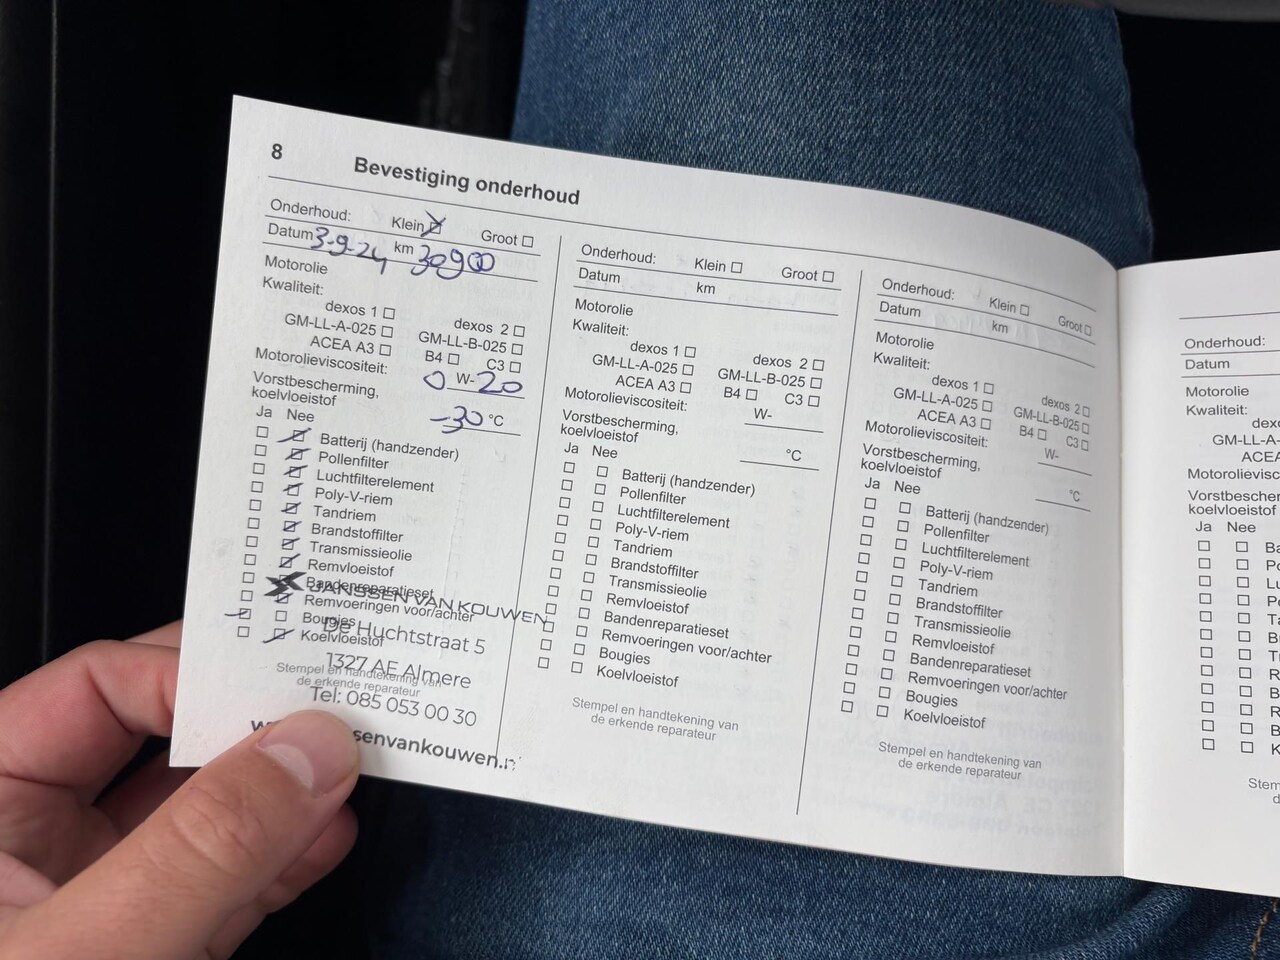 8 Bevestiging onderhoud
Onderhoud: Klein Groot
Datum 3-9-24 km 30900
Motorolie
Kwaliteit:
dexos 1 dexos 2
GM-LL-A-025 GM-LL-B-025
ACEA A3 B4 C3
Motorolieviscositeit: 0 W- 20
Vorstbescherming,
koelvloeistof -30 °C
Ja Nee
Batterij (handzender)
Pollenfilter
Luchtfilterelement
Poly-V-riem
Tandriem
Brandstoffilter
Transmissieolie
Remvloeistof
Bandenreparatieset
JANSSEN VAN KOUWEN
Remvoeringen voor/achter
Bougies
De Huchtstraat 5
Koelvloeistof
1327 AE Almere
Stempel en handtekening van
de erkende reparateur
Tel: 085 053 00 30
senvankouwen.n
Onderhoud: Klein Groot
Datum km
Motorolie
Kwaliteit:
dexos 1 dexos 2
GM-LL-A-025 GM-LL-B-025
ACEA A3 B4 C3
Motorolieviscositeit: W-
Vorstbescherming,
koelvloeistof °C
Ja Nee
Batterij (handzender)
Pollenfilter
Luchtfilterelement
Poly-V-riem
Tandriem
Brandstoffilter
Transmissieolie
Remvloeistof
Bandenreparatieset
Remvoeringen voor/achter
Bougies
Koelvloeistof
Stempel en handtekening van
de erkende reparateur
Onderhoud: Klein Groot
Datum km
Motorolie
Kwaliteit:
dexos 1 dexos 2
GM-LL-A-025 GM-LL-B-025
ACEA A3 B4 C3
Motorolieviscositeit: W-
Vorstbescherming,
koelvloeistof °C
Ja Nee
Batterij (handzender)
Pollenfilter
Luchtfilterelement
Poly-V-riem
Tandriem
Brandstoffilter
Transmissieolie
Remvloeistof
Bandenreparatieset
Remvoeringen voor/achter
Bougies
Koelvloeistof
Stempel en handtekening van
de erkende reparateur
Onderhoud:
Datum
Motorolie
Kwaliteit:
dexo
GM-LL-A-
ACEA
Motorolievisc
Vorstbescher
koelvloeistof
Ja Nee
Ba
Po
Lu
Po
Ta
B
Tr
R
B
R
B
K
Stem
d